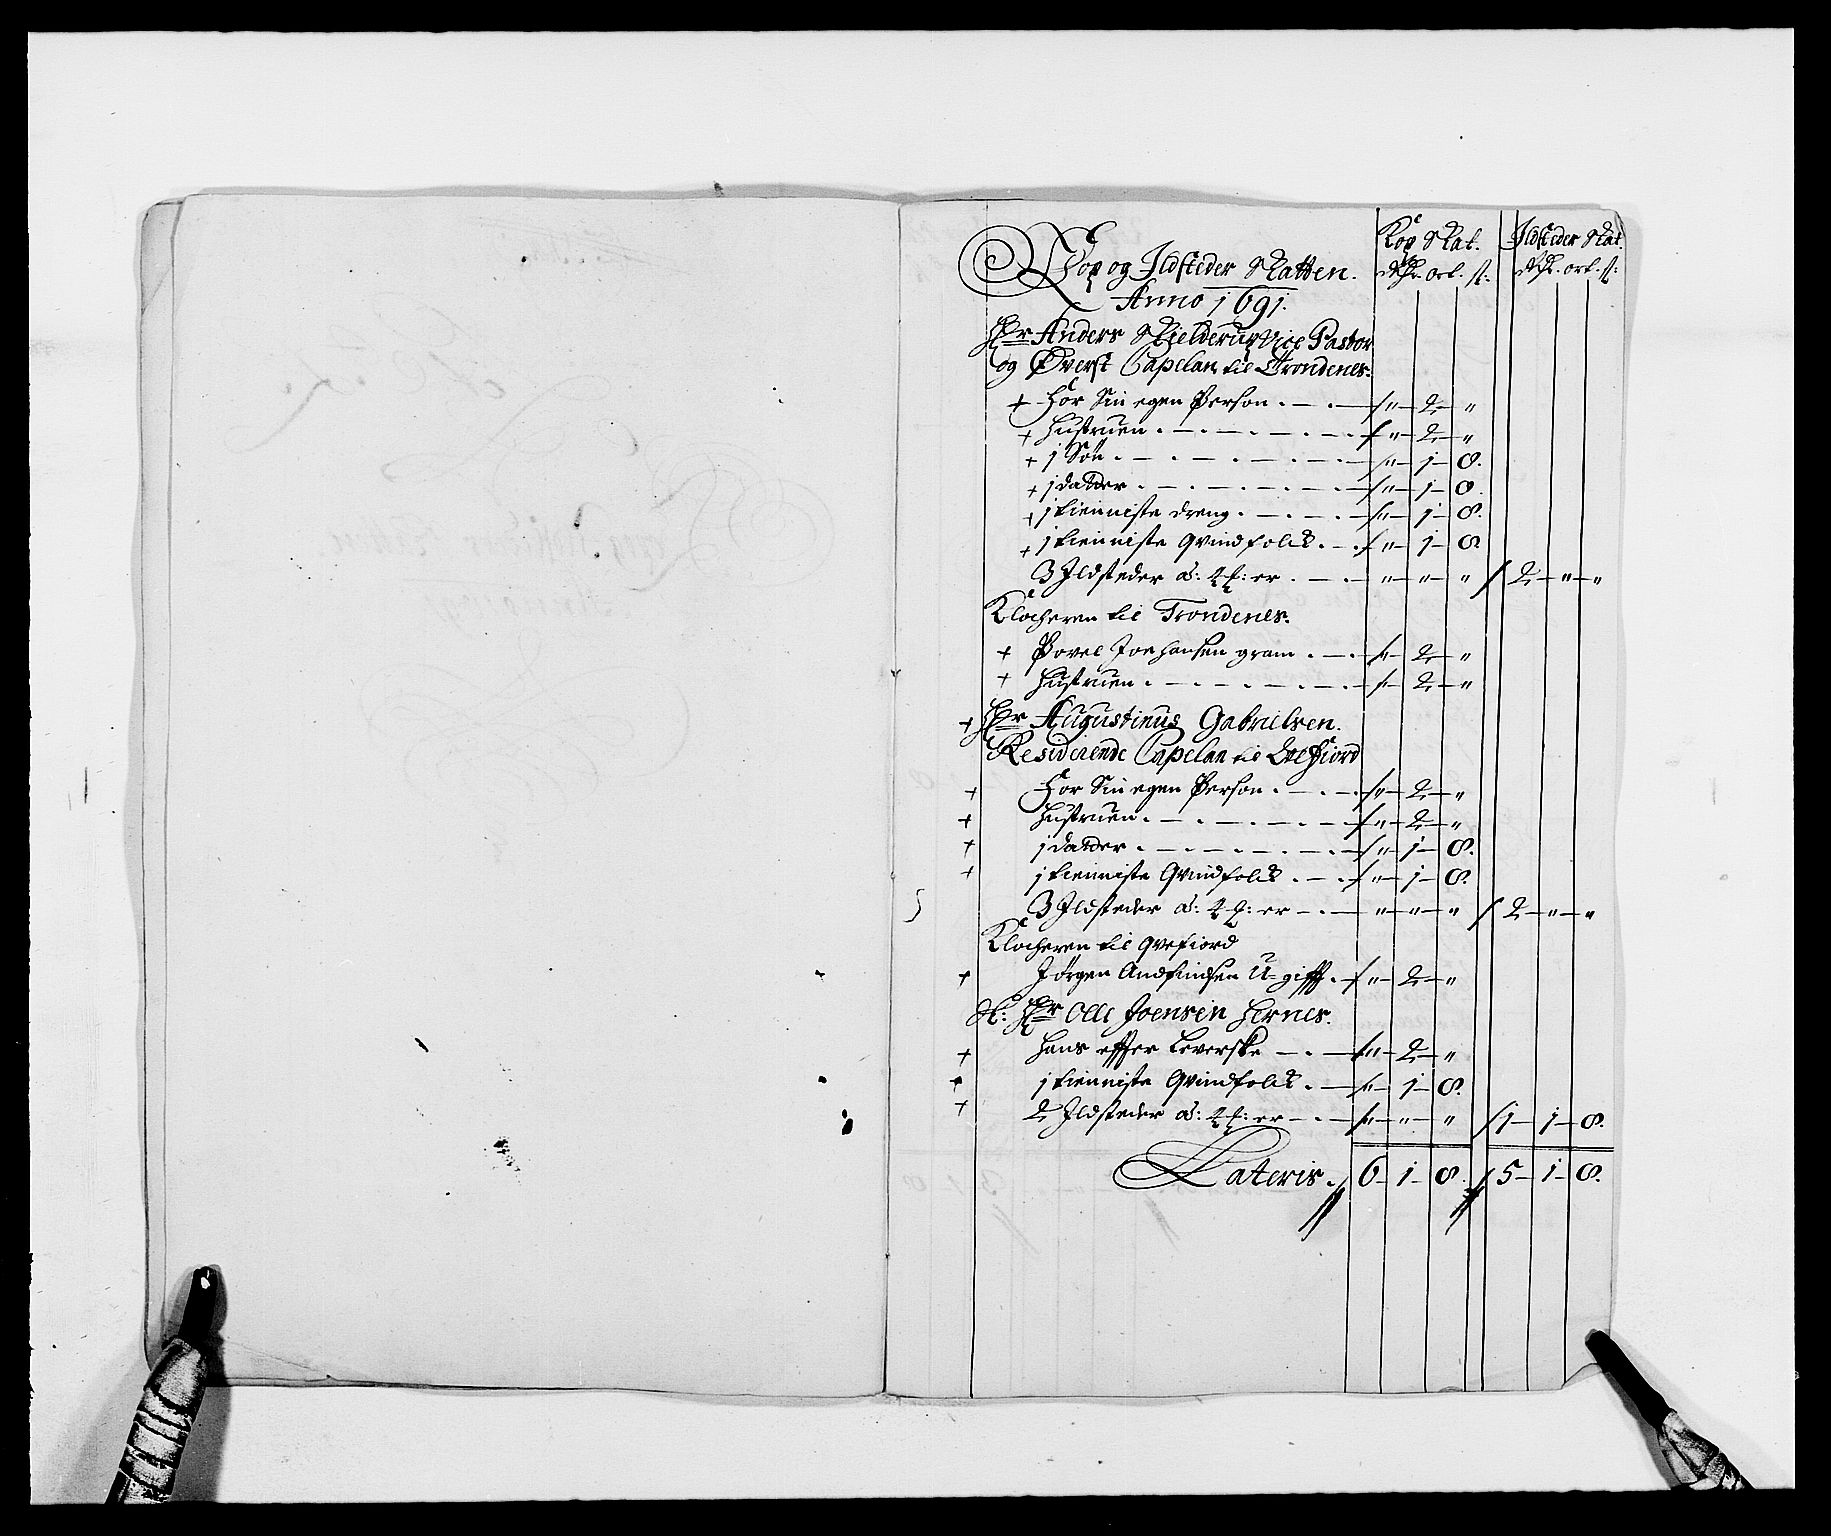 Kop Skat. Ildsteder Skat
Rdr. ort. s: Rdr. ort. s:
Kop og Ildsteder Skatten.
Anno 1691.
Hr Anders Skielderup Vice Pastor
og Øverst Capelan til Trondenes.
+ For Sin egen Person . — . — " — 2 — "
+ Hustruen . — . — . — " — 2 — "
+ 1 Søn . — . — . — " — 1 — 8.
+ 1 datter . — . — . — " — 1 — 8.
+ 1 tienniste dreng . — . — " — 1 — 8.
+ 1 tienniste Qvindfolck . — . " — 1 — 8.
3 Ildsteder á: 2 : er . — . — " — " — " / 2 — " — "
Klocheren til Trondenes.
+ Povel Joehansen gram . — . " — 2 — "
+ Hustruen . — . — . — " — 2 — "
+ Hr Augustinus Gabrielsen.
Residerende Capelan til Qvefiord
+ For Sin egen Person . — . — " — 2 — "
+ Hustruen . — . — . — " — 2 — "
+ 1 datter . — . — . — " — 1 — 8.
+ 1 tienniste Qvindfolck . — . " — 1 — 8.
3 Ildsteder á: 2 : er — . — " — " — " / 2 — " — "
Klocheren til Qvefiord
+ Jørgen Andfindsen U-gifft . — " — 2 — "
Sl: Hr Olle Joensen Hernes.
+ Hans effter Leverske — . — " — 2 — "
+ 1 tienniste Qvindfolck . — " — 1 — 8.
+ 2 Ildsteder á: 2 : er — . — " — " — " / 1 — 1 — 8.
Lateris . / 6 — 1 — 8. / 5 — 1 — 8.